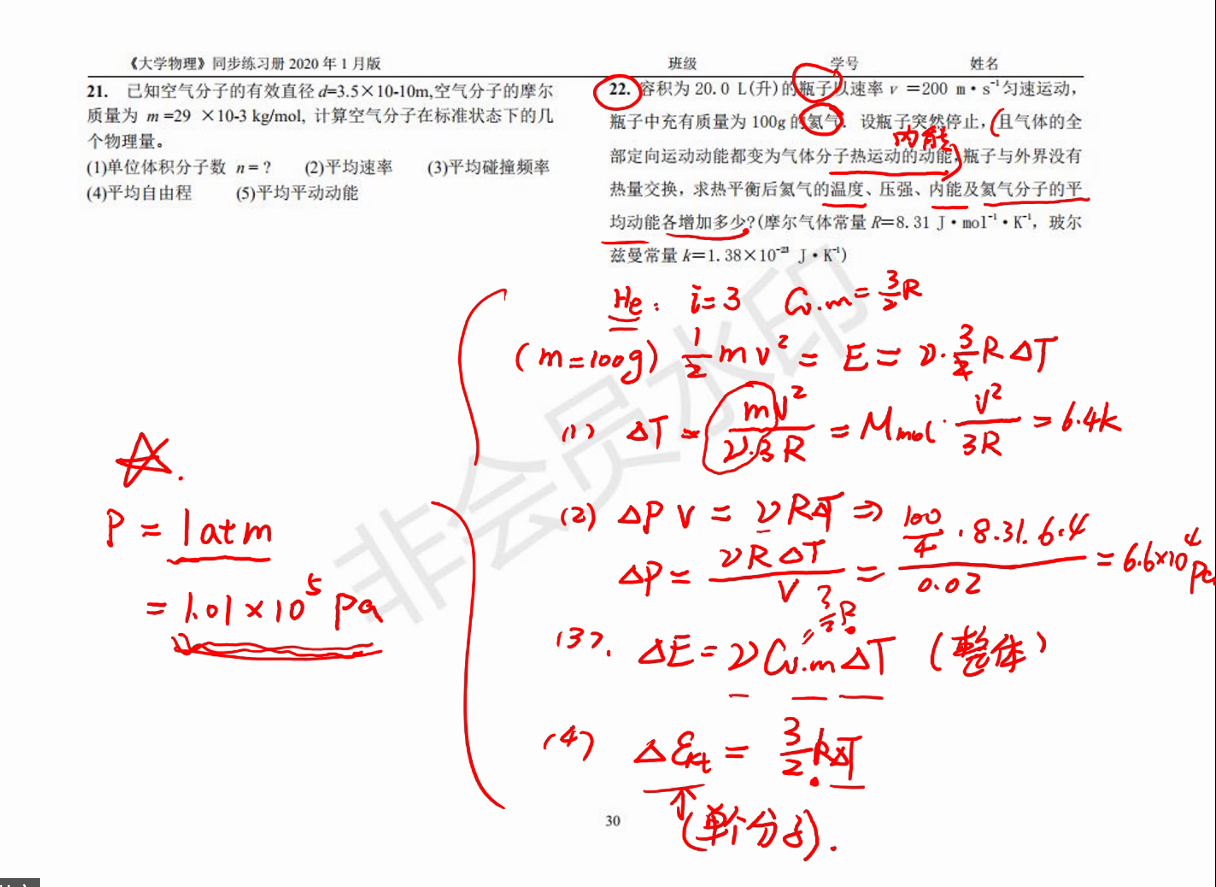 《大学物理》同步练习册 2020 年 1 月版
班级 学号 姓名
21. 已知空气分子的有效直径 d=3.5×10-10m,空气分子的摩尔
质量为 m =29 ×10-3 kg/mol, 计算空气分子在标准状态下的几
个物理量。
(1)单位体积分子数 n=? (2)平均速率 (3)平均碰撞频率
(4)平均自由程 (5)平均平动动能
22. 容积为 20.0 L(升)的瓶子以速率 v =200 m·s⁻¹匀速运动,
瓶子中充有质量为 100g 的氦气. 设瓶子突然停止, 且气体的全
内能
部定向运动动能都变为气体分子热运动的动能,瓶子与外界没有
热量交换, 求热平衡后氦气的温度、压强、内能及氦气分子的平
均动能各增加多少?(摩尔气体常量 R=8.31 J·mol⁻¹·K⁻¹, 玻尔
兹曼常量 k=1.38×10⁻²³ J·K⁻¹)
He: i=3 Cv.m=3/2R
(m=100g) 1/2mv²=E=ν·3/2RΔT
(1) ΔT=mv²/ν·3R=Mmol·v²/3R=6.4k
(2) ΔPV=νRΔT⇒
ΔP=νRΔT/V=100/4·8.31·6.4/0.02=6.6×10⁴Pa
(3). ΔE=νCv.mΔT (整体)
=3/2R.
(4) Δεkt=3/2kΔT
(单个分子).
P=1atm
=1.01×10⁵Pa
非会员水印
30